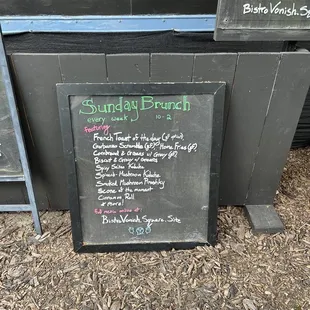 BistroVonish.S
Sunday Brunch
every week 10-2
Featuring
French Toast of the day
Garbanzo Scramble (gf) Home Fries (gf)
Cornbread & Greens w/ Gravy (gf)
Biscuit & Gravy w/ Greens
Spicy Seitan Kabobs
Squash Mushroom Kabobs
Smoked Mushroom
Scone of the moment
Cinnamon Roll
& More!
Full menu online @
BistroVonish.Square.Site